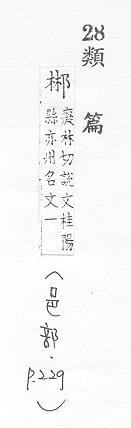 28
類篇
郴 癡林切說文桂陽
縣亦州名文一
(邑部·
p.229)